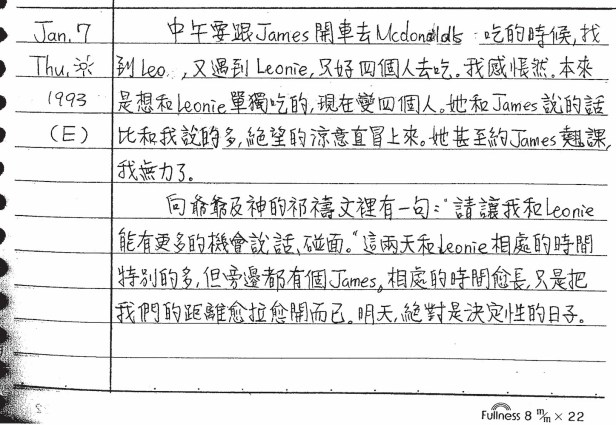 Jan. 7 中午要跟James開車去Mcdonalds 吃的時候,找
Thu. 到Leo.,又遇到Leonie,只好四個人去吃。我感悵然。本來
1993 是想和Leonie單獨吃的,現在變四個人。她和James說的話
(E) 比和我說的多,絕望的涼意直冒上來。她甚至約James翹課,
我無力了。
向爺爺及神的祁禱文裡有一句:"請讓我和Leonie
能有更多的機會說話、碰面。"這兩天和Leonie相處的時間
特別的多,但旁邊都有個James。相處的時間愈長,只是把
我們的距離愈拉愈開而已。明天,絕對是決定性的日子。
Fullness 8 m/m × 22